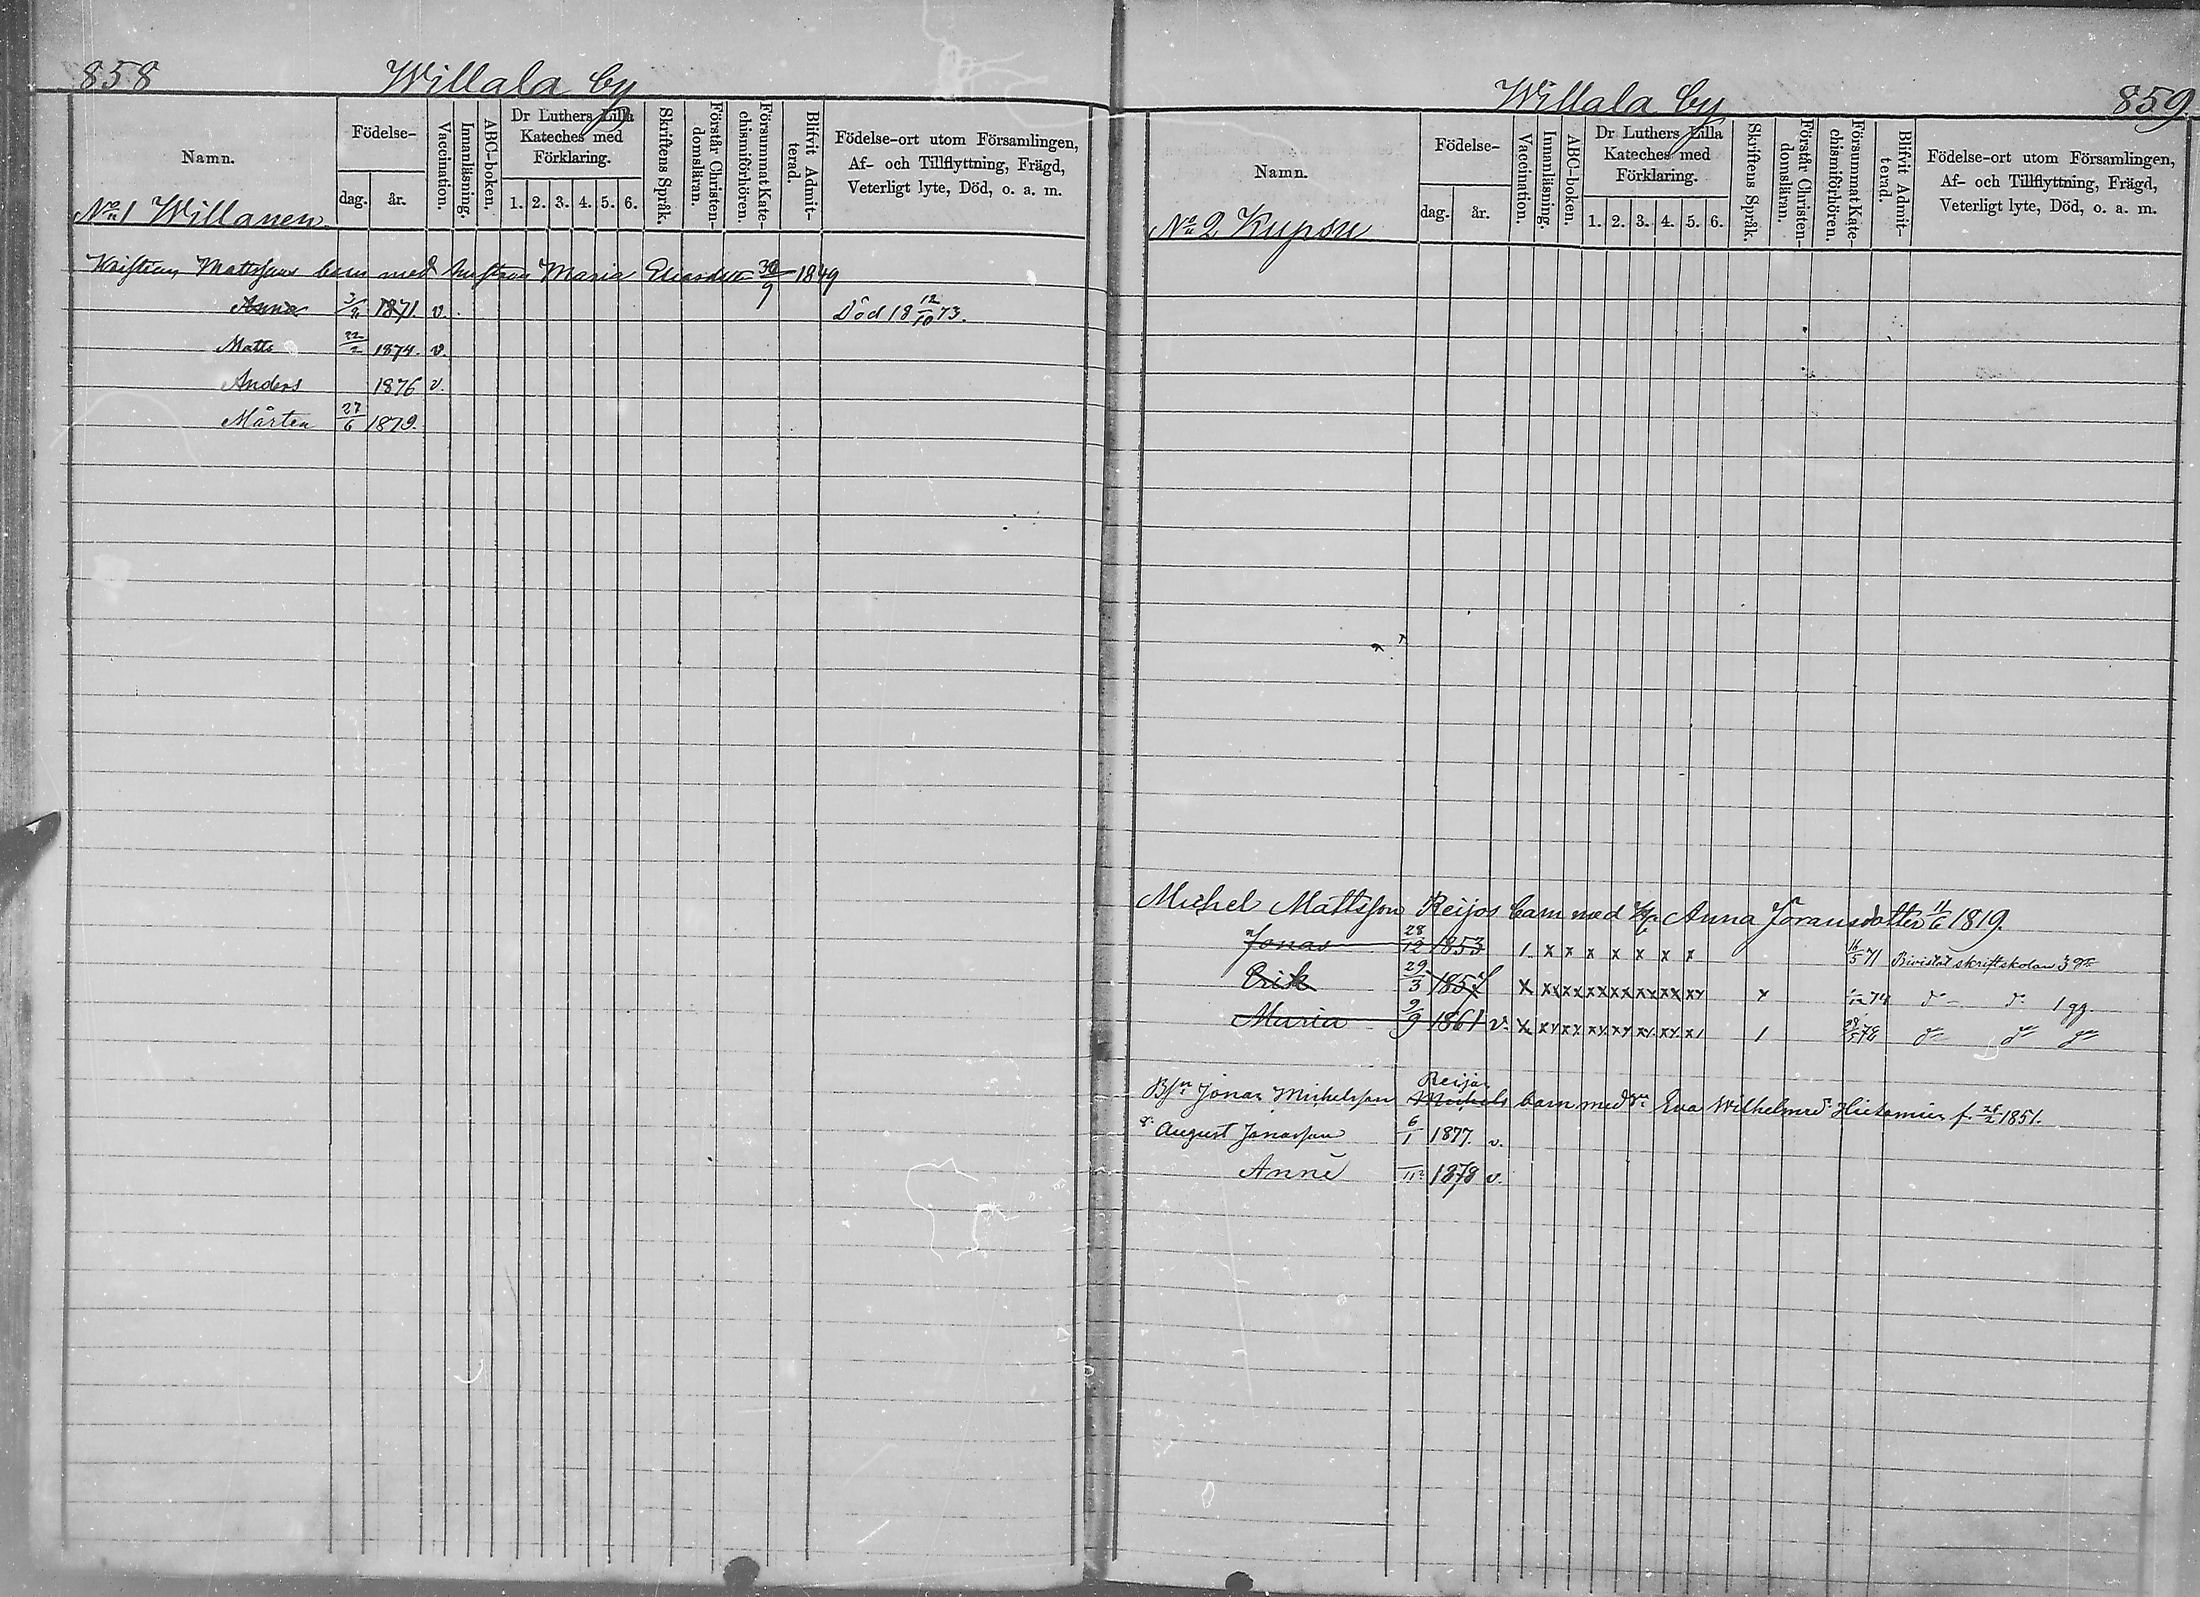 858 Willala by
Namn. Födelse- dag. år. Vaccination. Innanläsning. ABC-boken. Dr Luthers Lilla Kateches med Förklaring. 1. 2. 3. 4. 5. 6. Skriftens Språk. Förstår Christen-domsläran. Försummat Kate-chismiförhören. Blifvit Admit-terad. Födelse-ort utom Församlingen, Af- och Tillflyttning, Frägd, Veterligt lyte, Död, o. a. m.
No 1 Willanen
Mattssons barn med hustrun Maria Eliasdotter 30/9 1849
Anna 1871. v. Död 18 12/10 73.
Matts 22/2 1874. v.
Anders 1876 v.
Mårten 27/6 1879.
Willala by 859.
Namn. Födelse- dag. år. Vaccination. Innanläsning. ABC-boken. Dr Luthers Lilla Kateches med Förklaring. 1. 2. 3. 4. 5. 6. Skriftens Språk. Förstår Christen-domsläran. Försummat Kate-chismiförhören. Blifvit Admit-terad. Födelse-ort utom Församlingen, Af- och Tillflyttning, Frägd, Veterligt lyte, Död, o. a. m.
No 2 Kuposu
Michel Mattsson Reijos barn med Anna Joransdotter 11/6 1819.
Jonas 28/12 1853 1 x x x x x x x 16/5 71 Bivistat skriftskolan 3
Erik 29/3 1857 x xx xx xx xx xx xx xx x 74 do do 1 gg.
Maria 9/9 1861 v. x xx xx xx xx xx xx x1 1 78 do do do
Jonas Michelsson Reijos Michels barn med Eva Wilhelmsd. f. 1851.
August Jonasson 6/1 1877. v.
Anna 1878 v.